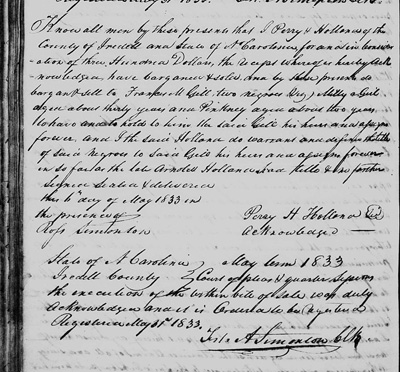 Know all men by these presents that I Perry H Holland of the
County of Iredell and State of N Carolina for and in consider
ation of three Hundred Dollars, the receipt whereof is hereby Ack
nowledged, have bargained & sold and by these presents do
bargain & sell to Gill two negroes Viz, Milly a Girl
aged about thirty years and Pinkney aged about two years
To have and to hold to him the said Gill his heirs and assigns
forever, and I the said Holland do warrant and defend the title
of said Negroes to said Gill his heirs and assigns forever
in so far as the late Holland had title & no further
Signed Sealed & delivered
this 6th day of May 1833 in
the presence of Perry H Holland
Ross Simonton Acknowledged
State of N Carolina May term 1833
Iredell County Court of pleas & quarter Sessions
the execution of the within bill of Sale was duly
Acknowledged and it is Ordered to be registered
Registered May 31st 1833.
Test A Simonton Clk